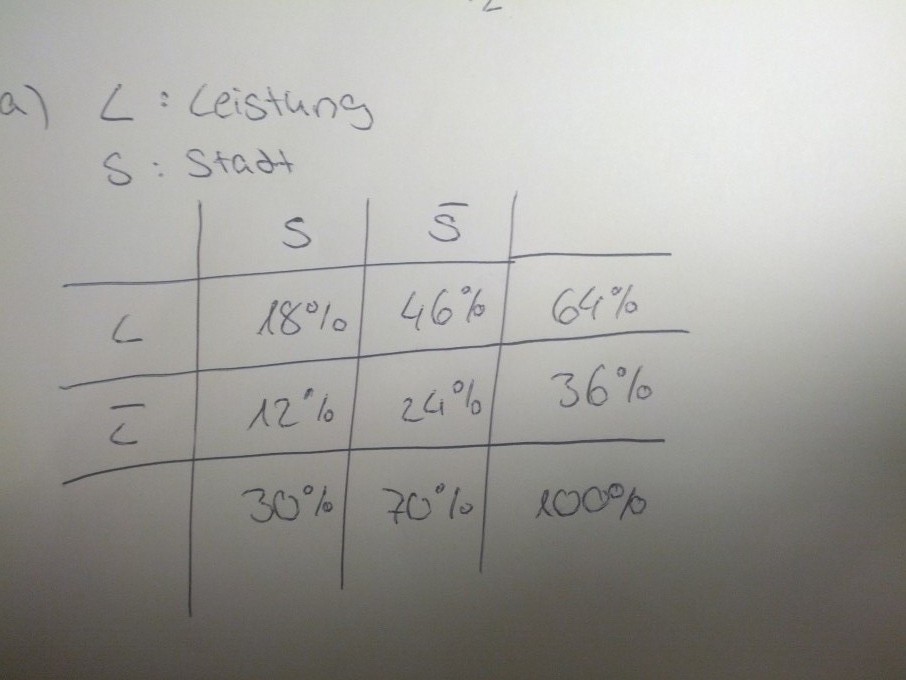 a) L : Leistung
S : Stadt
S S̄
L 18% 46% 64%
L̄ 12% 24% 36%
30% 70% 100%